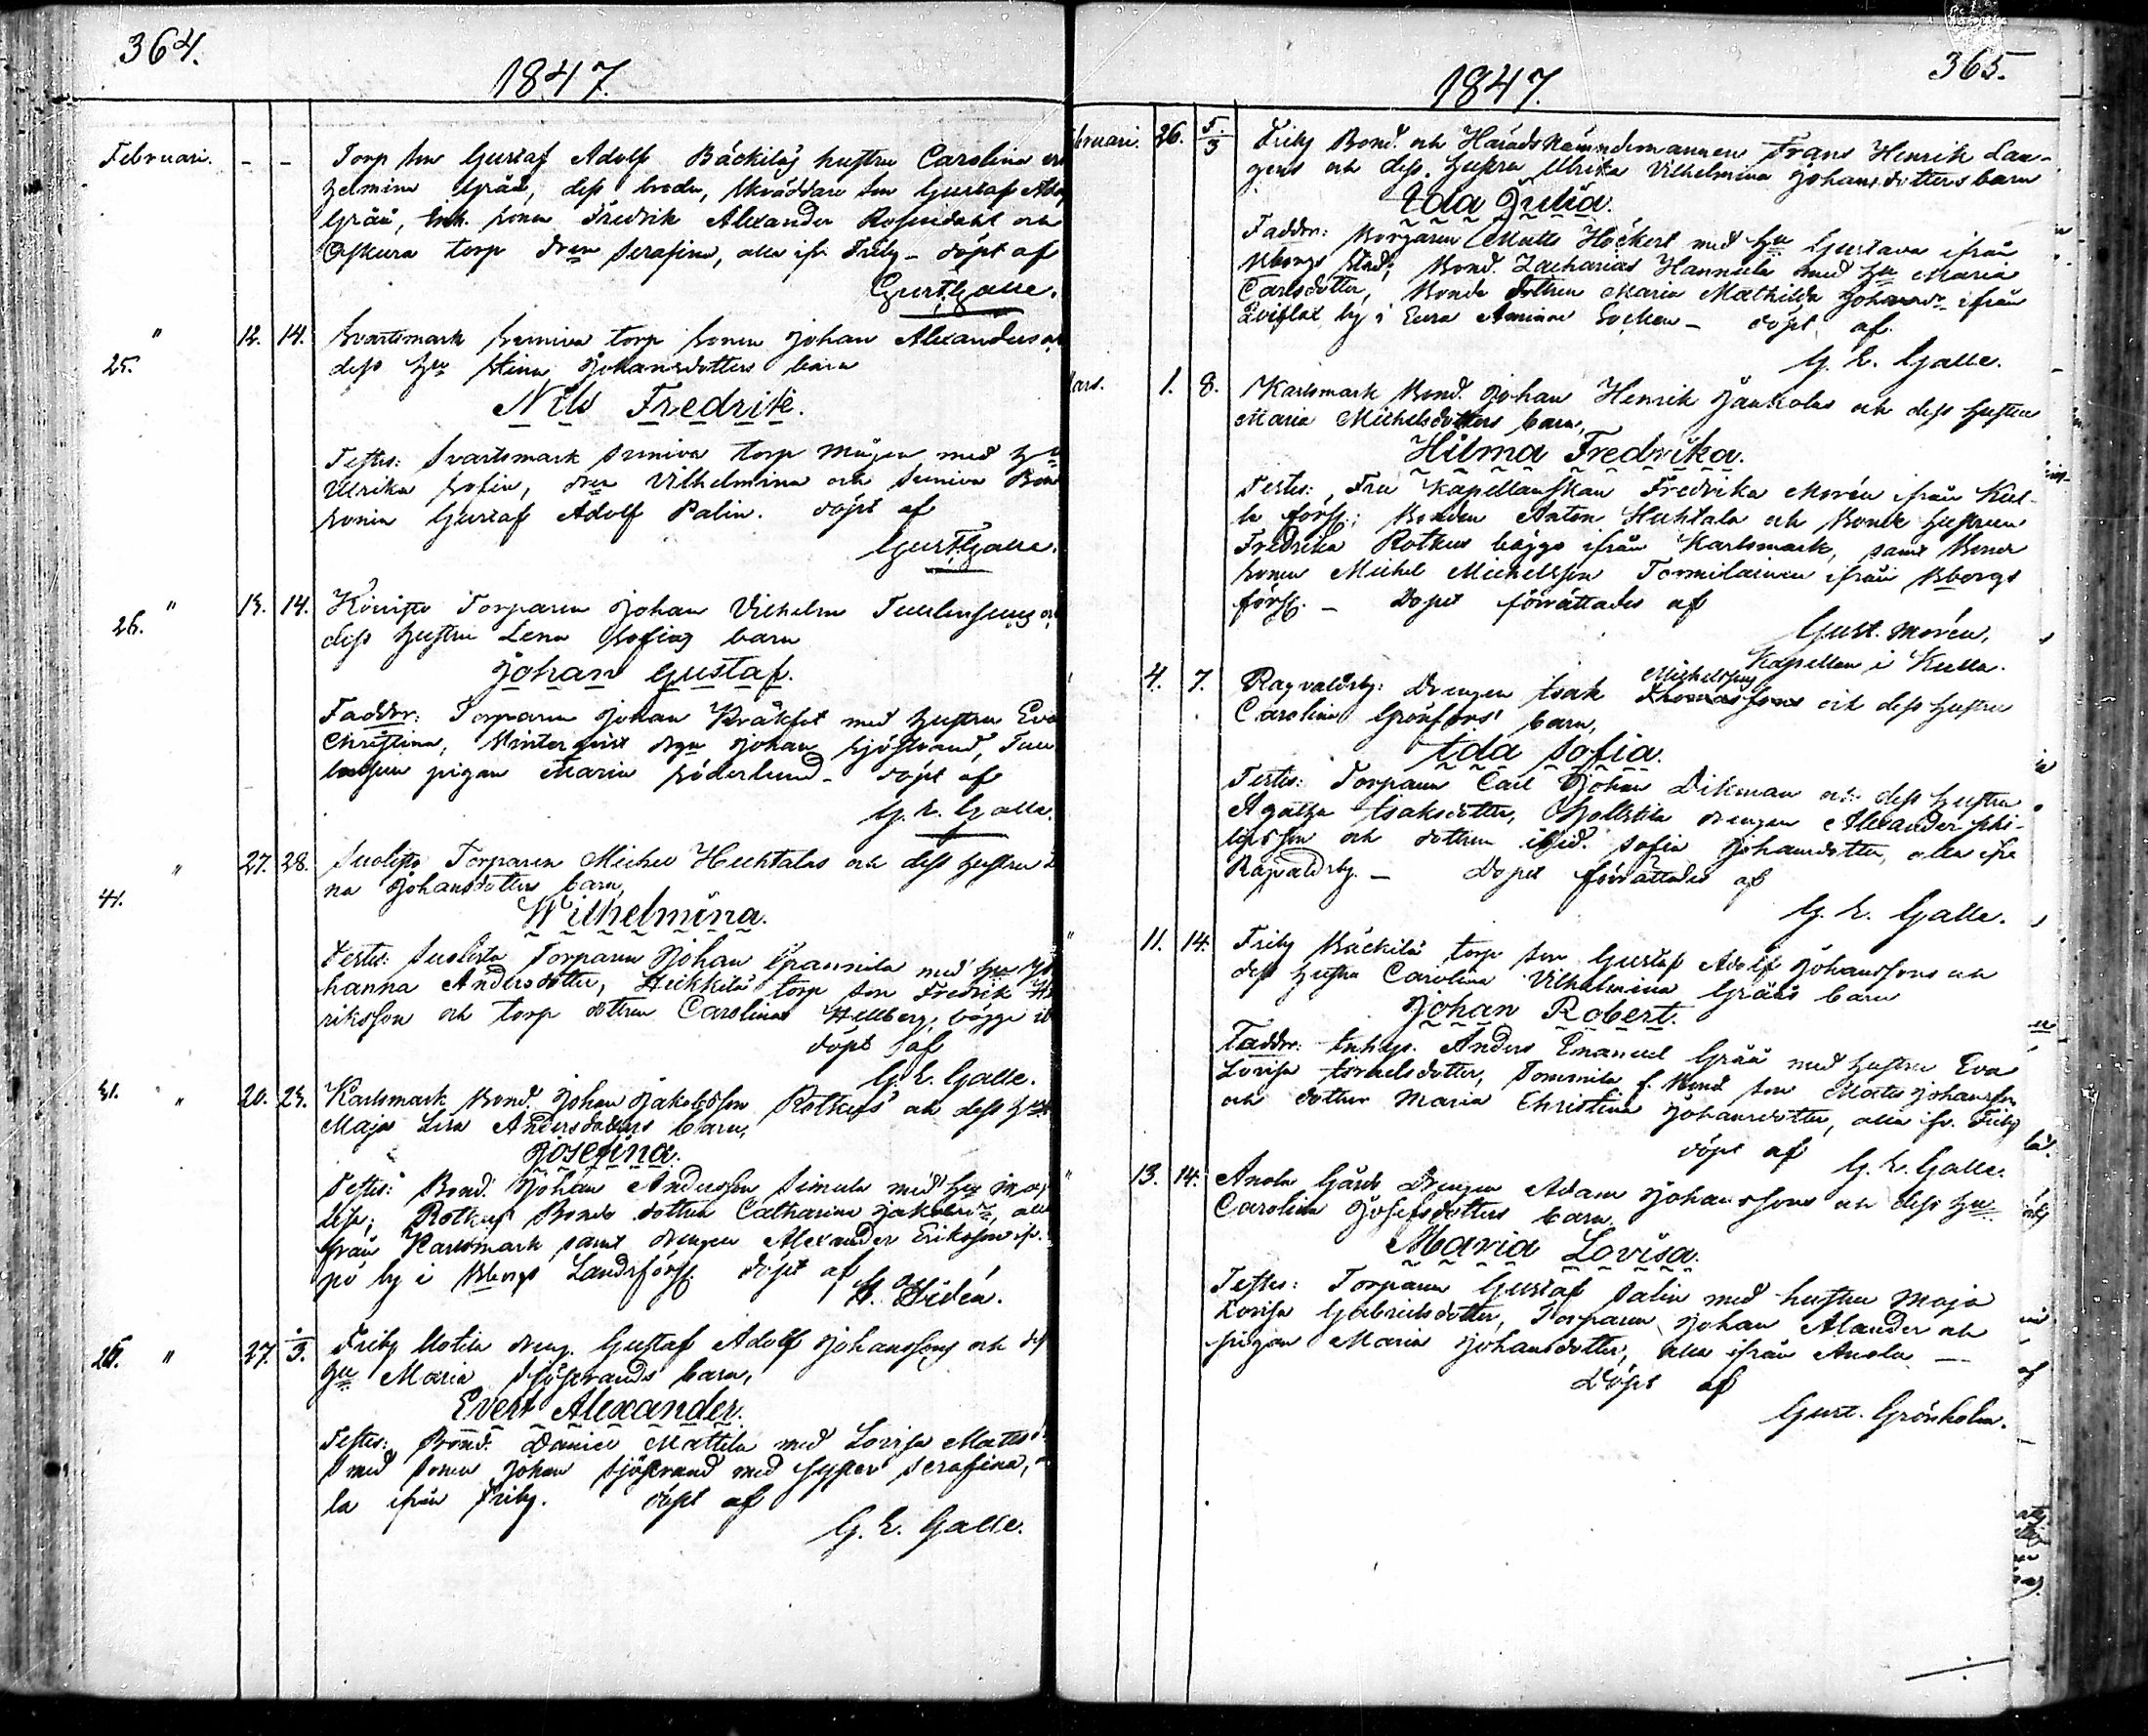 364.
1847.
Februari. - - Torp Son Gustaf Adolf Bäckiläs hustru Carolina
helmina Grää, dess broder, Skräddare Son Gustaf
Grää, Inh. sonen Fredrik Alexander Rosendahl och
torp dren Serafina, alla ifr. Friby - döpt af
Gust. Galle.
" 12. 14. Svartsmark Sunniva torp sonen Johan Alexanders
25. dess Hu Stina Johansdotters barn
Nils Fredrik.
Testes: Svartsmark Sunniva torp mågen med Hu
Ulrika Sofia, dren Vilhelmina och Sunniva Bond
sonen Gustaf Adolf Palin. döpt af
Gust. Galle.
" 13. 14. Torparen Johan Vilhelm
26. dess hustru Lena Sofias barn
Johan Gustaf.
Faddrar: Torparen Johan Kråkfot med hustru Eva
Christina, drgn Johan Sjöstrand,
pigan Maria Söderlund - döpt af
G. E. Galle.
" 27. 28. Torparen Michel Huhtalas och dess hustru
na Johansdotters barn,
41.
Wilhelmina.
Testes: Torparen Johan Grannila med Hu
hanna Andersdotter, Heikkilä torp son Fredrik
riksson och torp dottren Carolina Hellberg, bägge
döpt af
G. E. Galle.
31. " 20. 23. Karlsmark Bond. Johan Jakobsson Rotkus och dess
Maja Lisa Andersdotters barn,
Josefina.
Testes: Bond. Johan Andersson Simula med Hu Maj
Lisa; Rotkus Bonde dottren Catharina
från Karlsmark samt drengen Alexander Eriksson ifr.
po by i Bborgs Landsförs. döpt af
Hidén.
26. " 27. 3. Friby dreng. Gustaf Adolf Johanssons och
Hu Maria Sjöstrands barn,
Evert Alexander.
Testes: Bond. Daniel Mattila med Lovisa Matts
Smed sonen Johan Sjöstrand med syster Serafina,
la ifrån Friby. döpt af
G. E. Galle.
365.
1847.
bruari. 26. 5/3 Friby Bond. och Häradsnämndemannen Frans Henrik Lau-
gens och dess hustru Ulrika Vilhelmina Johansdotters barn
Ida Julia.
Faddrar: Borgaren Matts Höckert med Hu Gustava ifrån
Bborgs Stad; Bond. Zacharias Hannula med Hu Maria
Carlsdotter, Bonde dottren Maria Mathilda ifrån
by i Eura Aminne Socken - döpt af
G. E. Galle.
ars. 1. 8. Karlsmark Bond. Johan Henrik och dess hustru
Maria Michelsdotters barn,
Hilma Fredrika.
Testes: Fru Kapellanskan Fredrika Morén ifrån Kul-
la förs.; Bonden Anton Huhtala och Bonde hustrun
Fredrika Rotkus bägge ifrån Karlsmark, samt Bonde
sonen Michel Michelsson Tommilainen ifrån Bborgs
förs. - Dopet förrättades af
Gust. Morén,
Kapellan i Kulla.
4. 7. Ragvaldsby: Drengen Isak Michelssons och dess hustru
Carolina Grönfors barn,
Ida Sofia.
Testes: Torparen Carl Johan Dikman och dess hustru
Agatha Isaksdotter, drengen Alexander Phi-
lipsson och dottren ibid. Sofia Johansdotter, alla ifrå
Ragvaldsby. - Dopet förrättades af
G. E. Galle.
11. 14. Friby Bäckilä torp son Gustaf Adolf Johanssons och
dess hustru Carolina Vilhelmina Grääs barn
Johan Robert.
Faddrar: Inhys. Anders Emanuel Grää med hustru Eva
Lovisa Israelsdotter, Tommila f. Bond son Matts Johansson
och dotter Maria Christina Johansdotter, alla ifr. Friby
döpt af
G. E. Galle.
13. 14. Anola Gårds Drengen Adam Johanssons och dess Hu
Carolina Josefsdotters barn
Maria Lovisa.
Testes: Torparen Gustaf Salin med hustru Maja
Lovisa Gabrielsdotter, Torparen Johan Alander och
pigan Maria Johansdotter, alla ifrån Anola -
Döpt af
Gust. Grönholm.